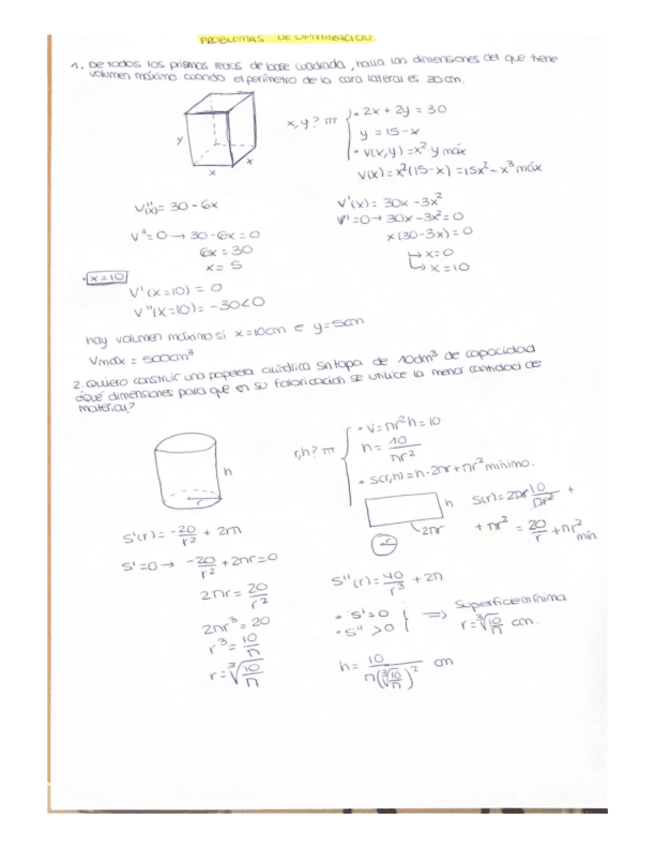 PROBLEMAS DE OPTIMIZACIÓN
1. De todos los prismas rectos de base cuadrada, halla las dimensiones del que tiene
volumen máximo cuando el perímetro de la cara lateral es 30cm.
y
x
x
x, y?
• 2x + 2y = 30
y = 15 - x
• V(x,y) = x²·y máx
V(x) = x²(15-x) = 15x² - x³ máx
V''(x) = 30 - 6x
V'' = 0 → 30 - 6x = 0
6x = 30
x = 5
V'(x) = 30x - 3x²
V' = 0 → 30x - 3x² = 0
x(30 - 3x) = 0
↳ x = 0
↳ x = 10
• x = 10
V'(x=10) = 0
V''(x=10) = -30 < 0
hay volumen máximo si x = 10cm e y = 5cm
Vmáx = 500cm³
2. Quiero construir una papelera cilíndrica sin tapa de 10dm³ de capacidad
¿Qué dimensiones para que en su fabricación se utilice la menor cantidad de
material?
h
r
r, h?
• V = πr²h = 10
h = 10/πr²
• S(r,h) = h·2πr + πr² mínimo.
h
2πr
r
S(r) = 2πr 10/πr² +
+ πr² = 20/r + πr²
mín
S'(r) = -20/r² + 2πr
S' = 0 → -20/r² + 2πr = 0
2πr = 20/r²
2πr³ = 20
r³ = 10/π
r = ∛(10/π)
S''(r) = 40/r³ + 2π
• S' = 0
• S'' > 0
⇒ Superficie mínima
r = ∛(10/π) cm.
h = 10/π(∛(10/π))² cm